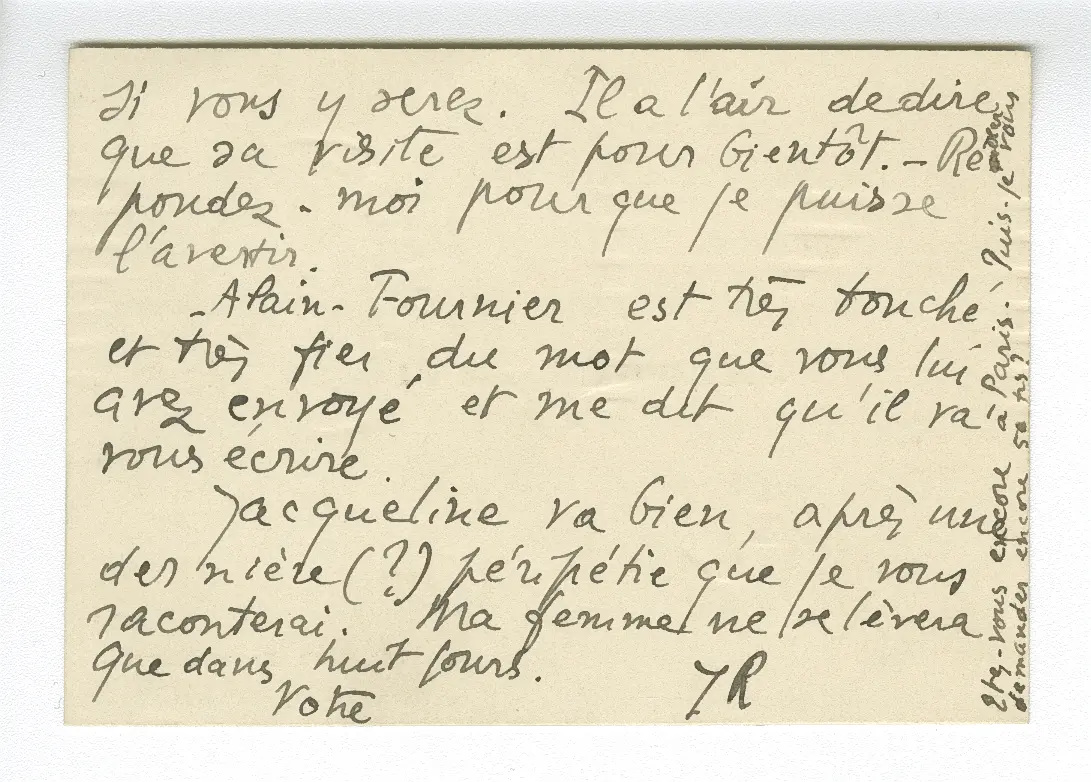 si vous y serez. Il a l'air de dire
que sa visite est pour bientôt. – Ré
pondez-moi pour que je puisse
l'avertir.
– Alain-Fournier est très touché
et très fier du mot que vous lui
avez envoyé et me dit qu'il va
vous écrire.
Jacqueline va bien, après une
dernière (?) péripétie que je vous
raconterai. Ma femme ne se lèvera
que dans huit jours.
Votre JR
Etes-vous encore à Paris. Puis-je vous
demander encore